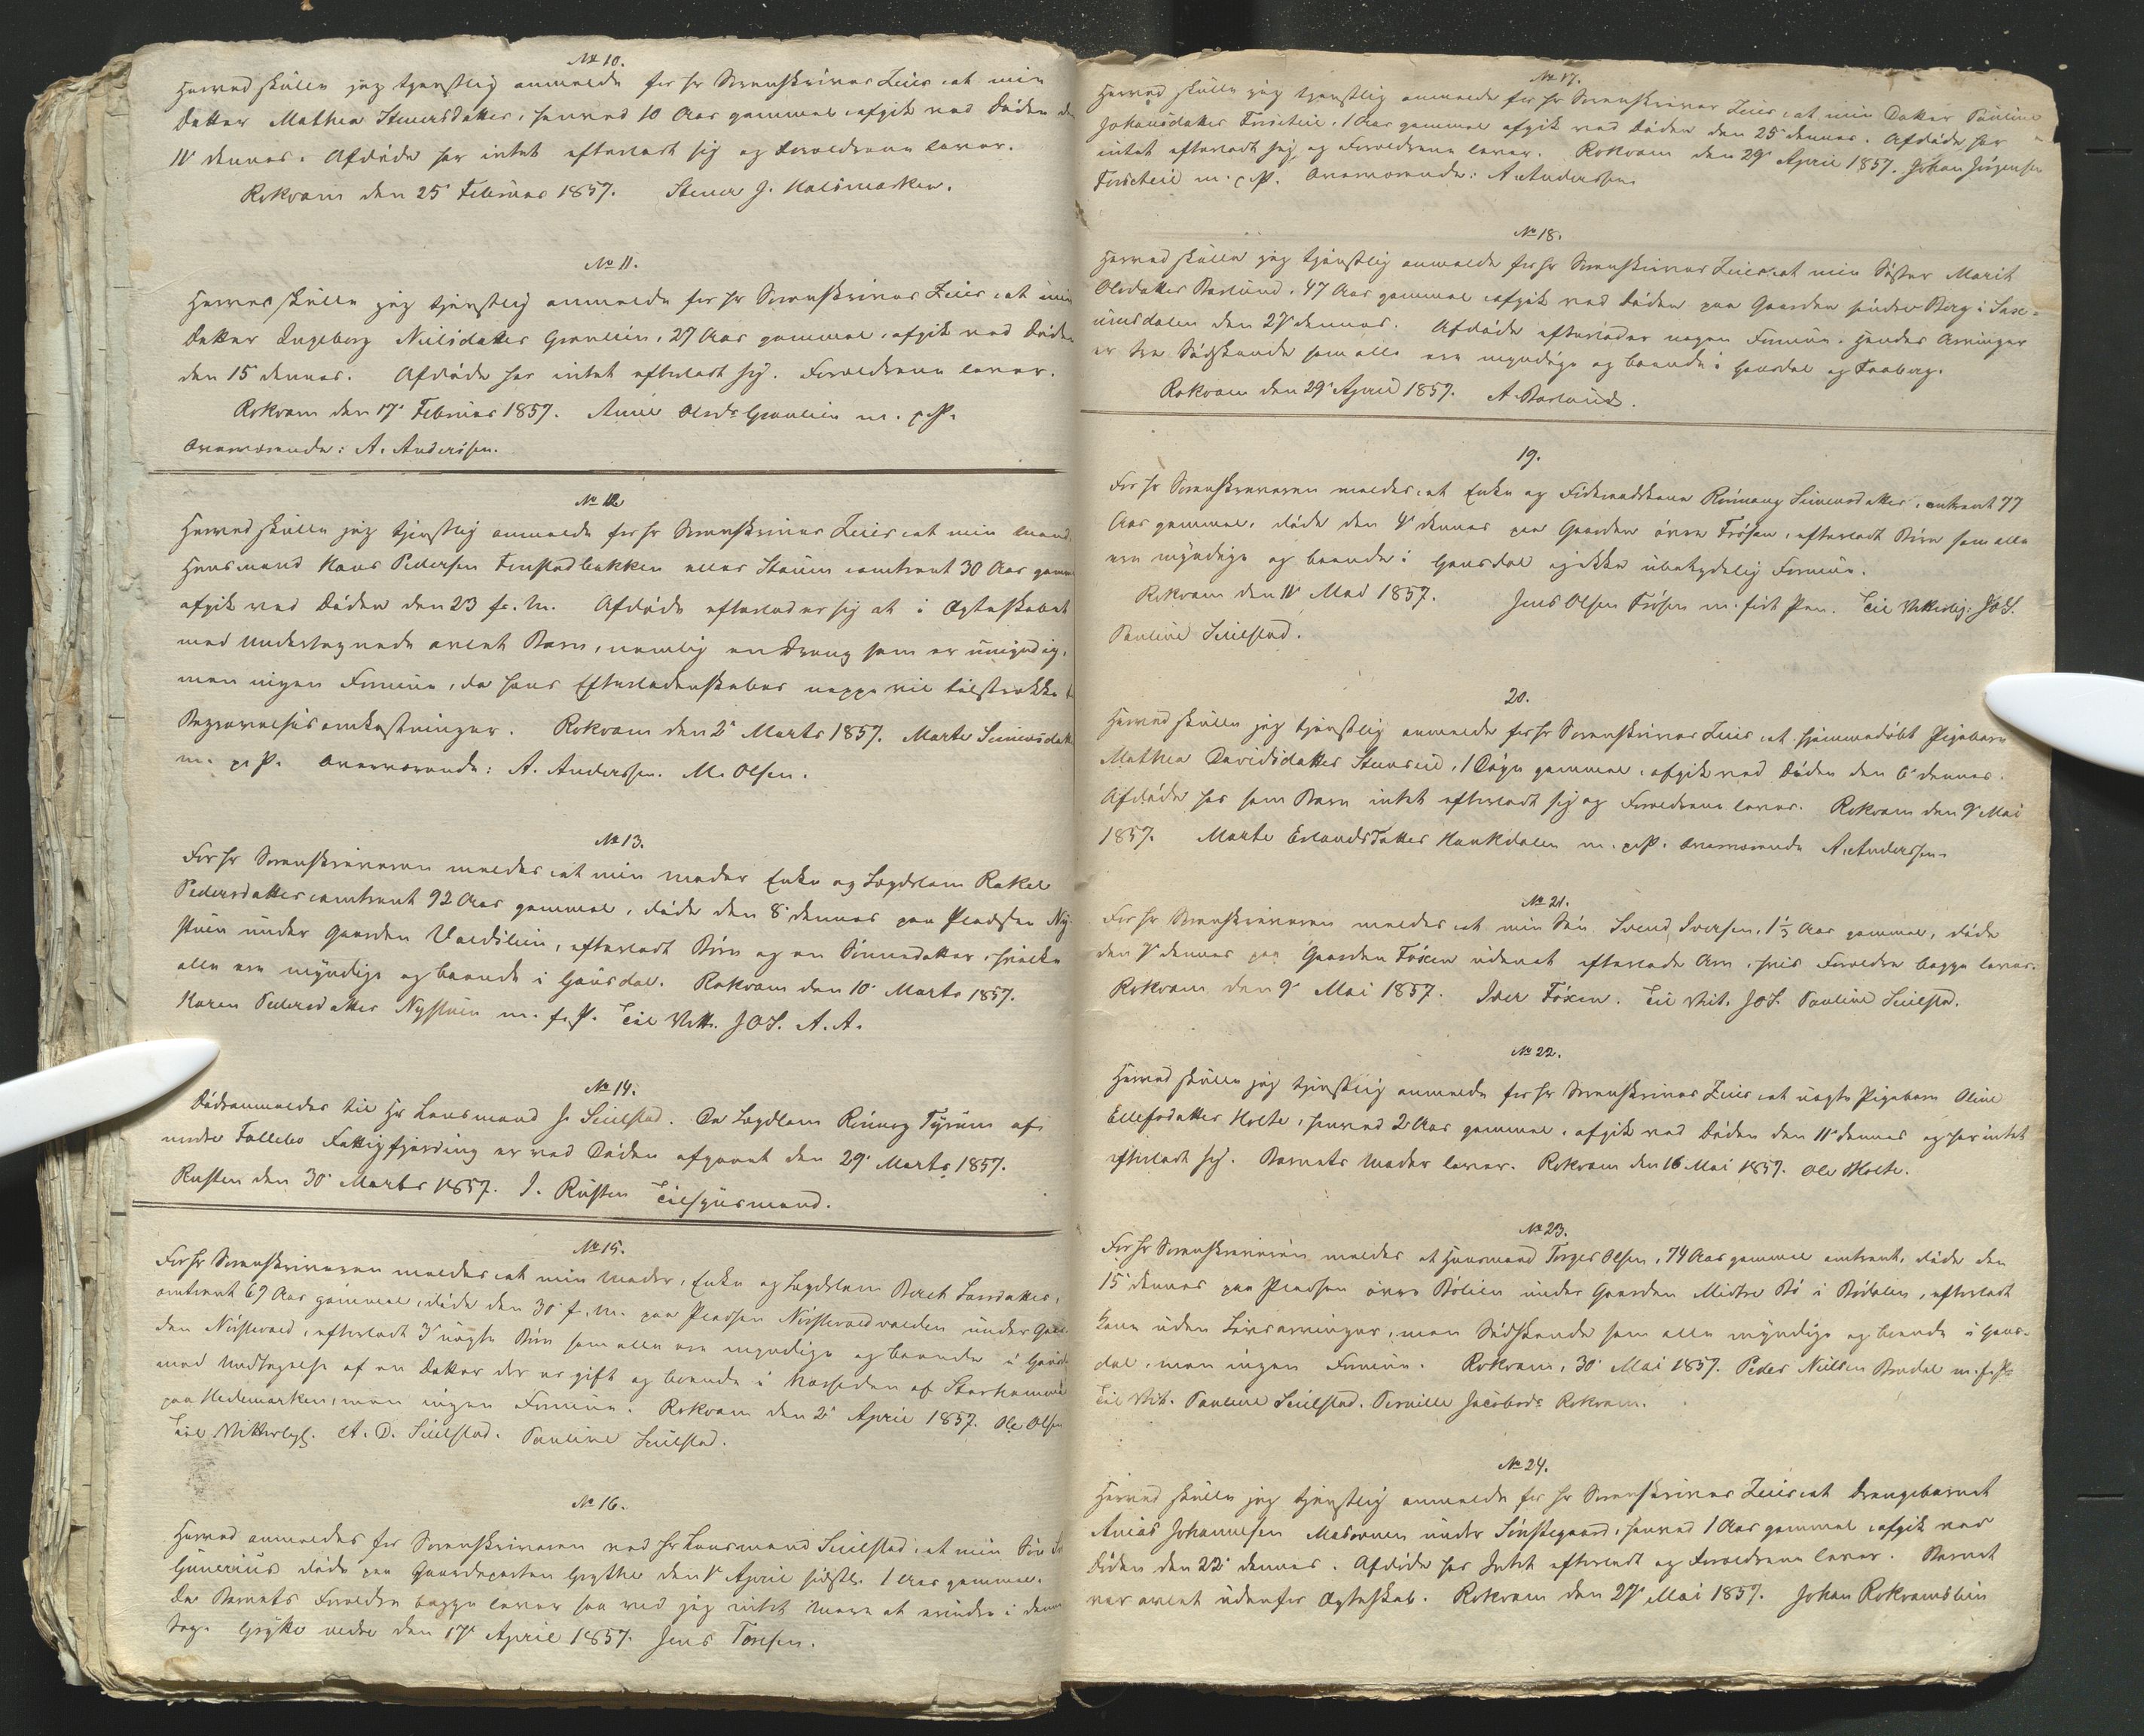 No 10.
Herved skulle jeg tjenstlig anmelde for Hr Sorenskriver Zeier, at min
Datter Mathea Steversdatter, henved 10 Aar gammel, afgik ved Døden
11' dennes. Afdøde har intet efterladt sig og Forældrene lever.
Rokvam den 25' Februar 1857. Stener J. Kalsmarken.
No 11.
Herved skulle jeg tjenstlig anmelde for Hr Sorenskriver Zeier, at min
Datter Ingeborg Nielsdatter Granlien, 27 Aar gammel, afgik ved Døden
den 15' dennes. Afdøde har intet efterladt sig. Forældrene lever.
Rokvam den 17' Februar 1857. Anne Olsdr Granlien m. p. P.
Overværende: A. Anderssen.
No 12
Herved skulle jeg tjenstlig anmelde for Hr Sorenskriver Zeier, at min Mand,
Huusmand Hans Pedersen Finstadbakken eller Stouin, omtrent 30 Aar
afgik ved Døden den 23 f. M. Afdøde efterlader sig et i Ægteskabet
med Undertegnede avlet Barn, nemlig en Dreng som er umyndig,
men ingen Formue, da hans Efterladenskaber neppe vil tilstrække
Begravelsesomkostninger. Rokvam den 2' Marts 1857. Marte Simensdatt
m. p. P. Overværende: A. Anderssen. M. Olsen.
No 13.
For Hr Sorenskriveren meldes, at min Moder Enke og Lægdslem Rakel
Pedersdatter, omtrent 92 Aar gammel, døde den 8' dennes paa Pladsen Ny-
stuen under Gaarden Voldslien, efterladt Børn og en Sønnedatter, hvilke
alle ere myndige og boende i Gausdal. Rokvam den 10' Marts 1857.
Karen Pedersdatter Nystuen m. f. P. Til Vitt. JOS. A. A.
No 14.
Dødsanmeldes til Hr Lensmand J. Seielstad. Da Lægdlem Rønnog Tyrum af
nedre Follebo Fattigfjerding er ved Døden afgaaet den 29' Marts 1857.
Rusten den 30' Marts 1857. I. Rusten Tilsynsmand.
No 15.
For Hr Sorenskriveren meldes, at min Moder, Enke og Lægdslem Berit Larsdatter,
omtrent 69 Aar gammel, døde den 30' f. M. paa Pladsen Nørstevoldvolden under Gaar-
den Nørstevold, efterladt 3 ægte Børn som alle ere myndige og boende i
med Undtagelse af en Datter der er gift og boende i Nærheden af Storhammer
paa Hedemarken, men ingen Formue. Rokvam den 2' April 1857. Ole Olsen
Til Vitterlgh. A. D. Seielstad. Pauline Seielstad.
No 16.
Herved anmeldes for Sorenskriveren ved Hr Lensmand Seielstad, at min Søn
Gunerius døde paa Gaardeparten Grytte den 1' April sidstl. 1 Aar gammel.
Da Barnets Forældre begge lever saa ved jeg intet mere at erindre i denne
Sag. Grytte nedre den 17' April 1857. Jens Torsen.
No 17.
Herved skulle jeg tjenstlig anmelde for Hr Sorenskriver Zeier, at min Datter Pauline
Johansdatter Forseteie, 1 Aar gammel afgik ved Døden den 25' dennes. Afdøde har
intet efterladt sig og Forældrene lever. Rokvam den 29' April 1857. Johan Jørgensen
Forseteie m. p. P. Overværende: A. Anderssen.
No 18.
Herved skulle jeg tjenstlig anmelde for Hr Sorenskriver Zeier, at min Søster Marit
Olsdatter Baslund, 47 Aar gammel, afgik ved Døden paa Gaarden søndre Berg i Saxe-
umsdalen den 27' dennes. Afdøde efterlader nogen Formue. Hendes Arvinger
er tre Sødskende som alle ere myndige og boende i Gausdal og Faaberg.
Rokvam den 29' April 1857. A. Baslund.
19.
For Hr Sorenskriveren meldes, at Enke og Føderaadskone Rønnaug Simensdatter, omtrent 77
Aar gammel, døde den 4' dennes paa Gaarden øvre Frøsen, efterladt Børn som alle
ere myndige og boende i Gausdal og ikke ubetydelig Formue.
Rokvam den 11' Mai 1857. Jens Olsen Frøsen m. ført Pen. Til Vitterlig: JOS.
Pauline Seielstad.
20.
Herved skulle jeg tjenstlig anmelde for Hr Sorenskriver Zeier, at hjemmedøbt Pigebarn
Mathea Davidsdatter Steenseie, 1 Døgn gammel, afgik ved Døden den 6' dennes.
Afdøde har som Barn intet efterladt sig og Forældrene lever. Rokvam den 9' Mai
1857. Marte Erlandsdatter Kankdalen m. p. P. Overværende A. Anderssen.
No 21.
For Hr Sorenskriveren meldes, at min Søn Svend Iversen, 1 1/3 Aar gammel, døde
den 7' dennes paa Gaarden Foxen udenat efterlade Arv, hvis Forældre begge lever.
Rokvam den 9' Mai 1857. Iver Foxen. Til Vit. JOS. Pauline Seielstad.
No 22.
Herved skulle jeg tjenstlig anmelde for Hr Sorenskriver Zeier, at uægte Pigebarn Oline
Ellefsdatter Holte, henved 2 Aar gammel, afgik ved Døden den 11' dennes og har intet
efterladt sig. Barnets Moder lever. Rokvam den 16 Mai 1857. Ole Holte.
No 23.
For Hr Sorenskriveren meldes at Huusmand Torger Olsen, 74 Aar gammel omtrent, døde den
15' dennes paa Pladsen øvre Bølien under Gaarden Midtre Bø i Bødalen, efterladt
Kone uden Livsarvinger, men Sødskende som alle myndige og boende i Gaus-
dal, men ingen Formue. Rokvam, 30' Mai 1857. Peder Nielsen Bredal m. f. P.
Til Vit. Pauline Seielstad. Pernille Jacobsdr Rokvam.
No 24.
Herved skulle jeg tjenstlig anmelde for Hr Sorenskriver Zeier, at Drengebarnet
Anias Johannesen Maserum under Sønstegaard, henved 1 Aar gammel, afgik ved
Døden den 22' dennes. Afdøde har Intet efterladt og Forældrene lever. Barnet
var avlet udenfor Ægteskab. Rokvam den 27' Mai 1857. Johan Rokvamslien